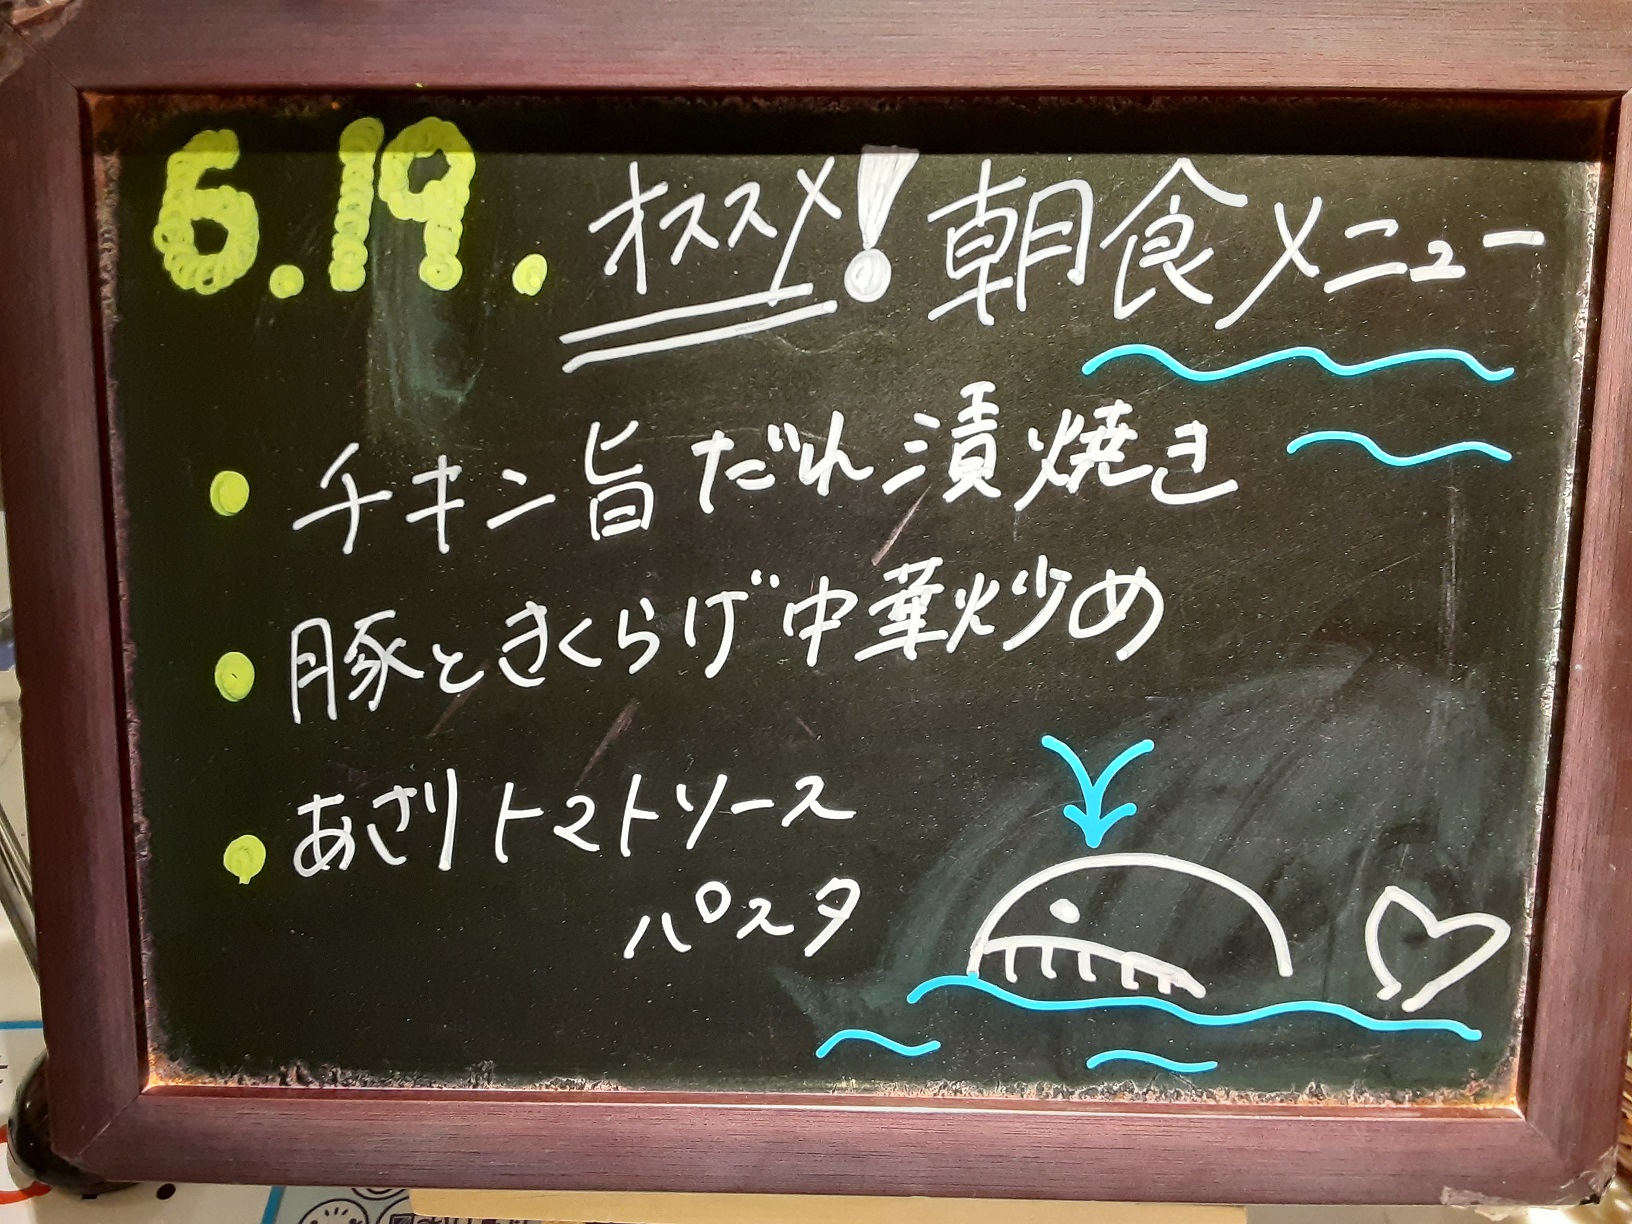 6.19. オススメ!朝食メニュー
• チキン旨だれ漬焼き
• 豚ときくらげ中華炒め
• あさりトマトソース
パスタ